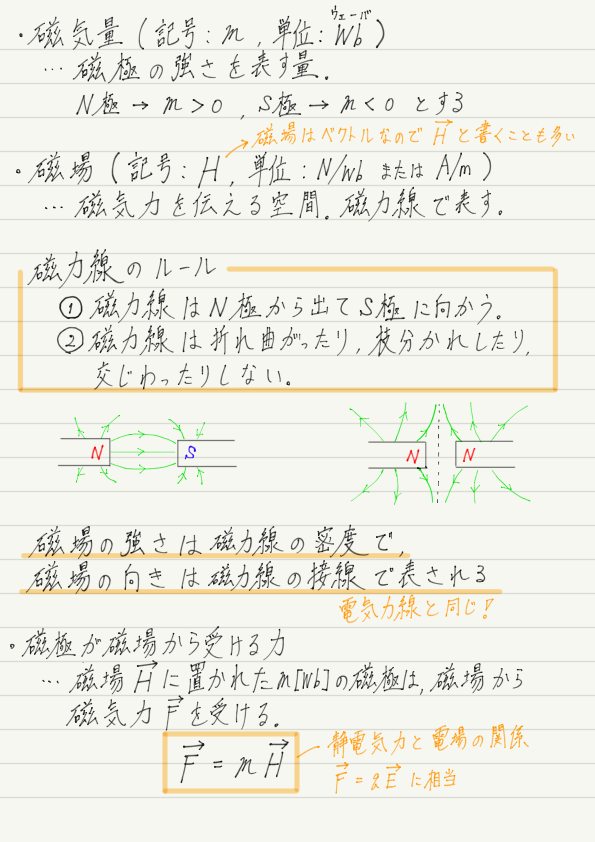 ウェーバ
・磁気量（記号：m，単位：Wb）
… 磁極の強さを表す量．
N極 → m＞0 ，S極 → m＜0 とする
磁場はベクトルなので H→ と書くことも多い
・磁場（記号：H，単位：N/Wb または A/m）
… 磁気力を伝える空間．磁力線で表す．
磁力線のルール
① 磁力線はN極から出てS極に向かう．
② 磁力線は折れ曲がったり，枝分かれしたり，
交じわったりしない．
N S N N
磁場の強さは磁力線の密度で，
磁場の向きは磁力線の接線で表される
電気力線と同じ！
・磁極が磁場から受ける力
… 磁場 H→ に置かれた m[Wb]の磁極は，磁場から
磁気力 F→ を受ける．
F→ = m H→
静電気力と電場の関係
F→ = q E→ に相当